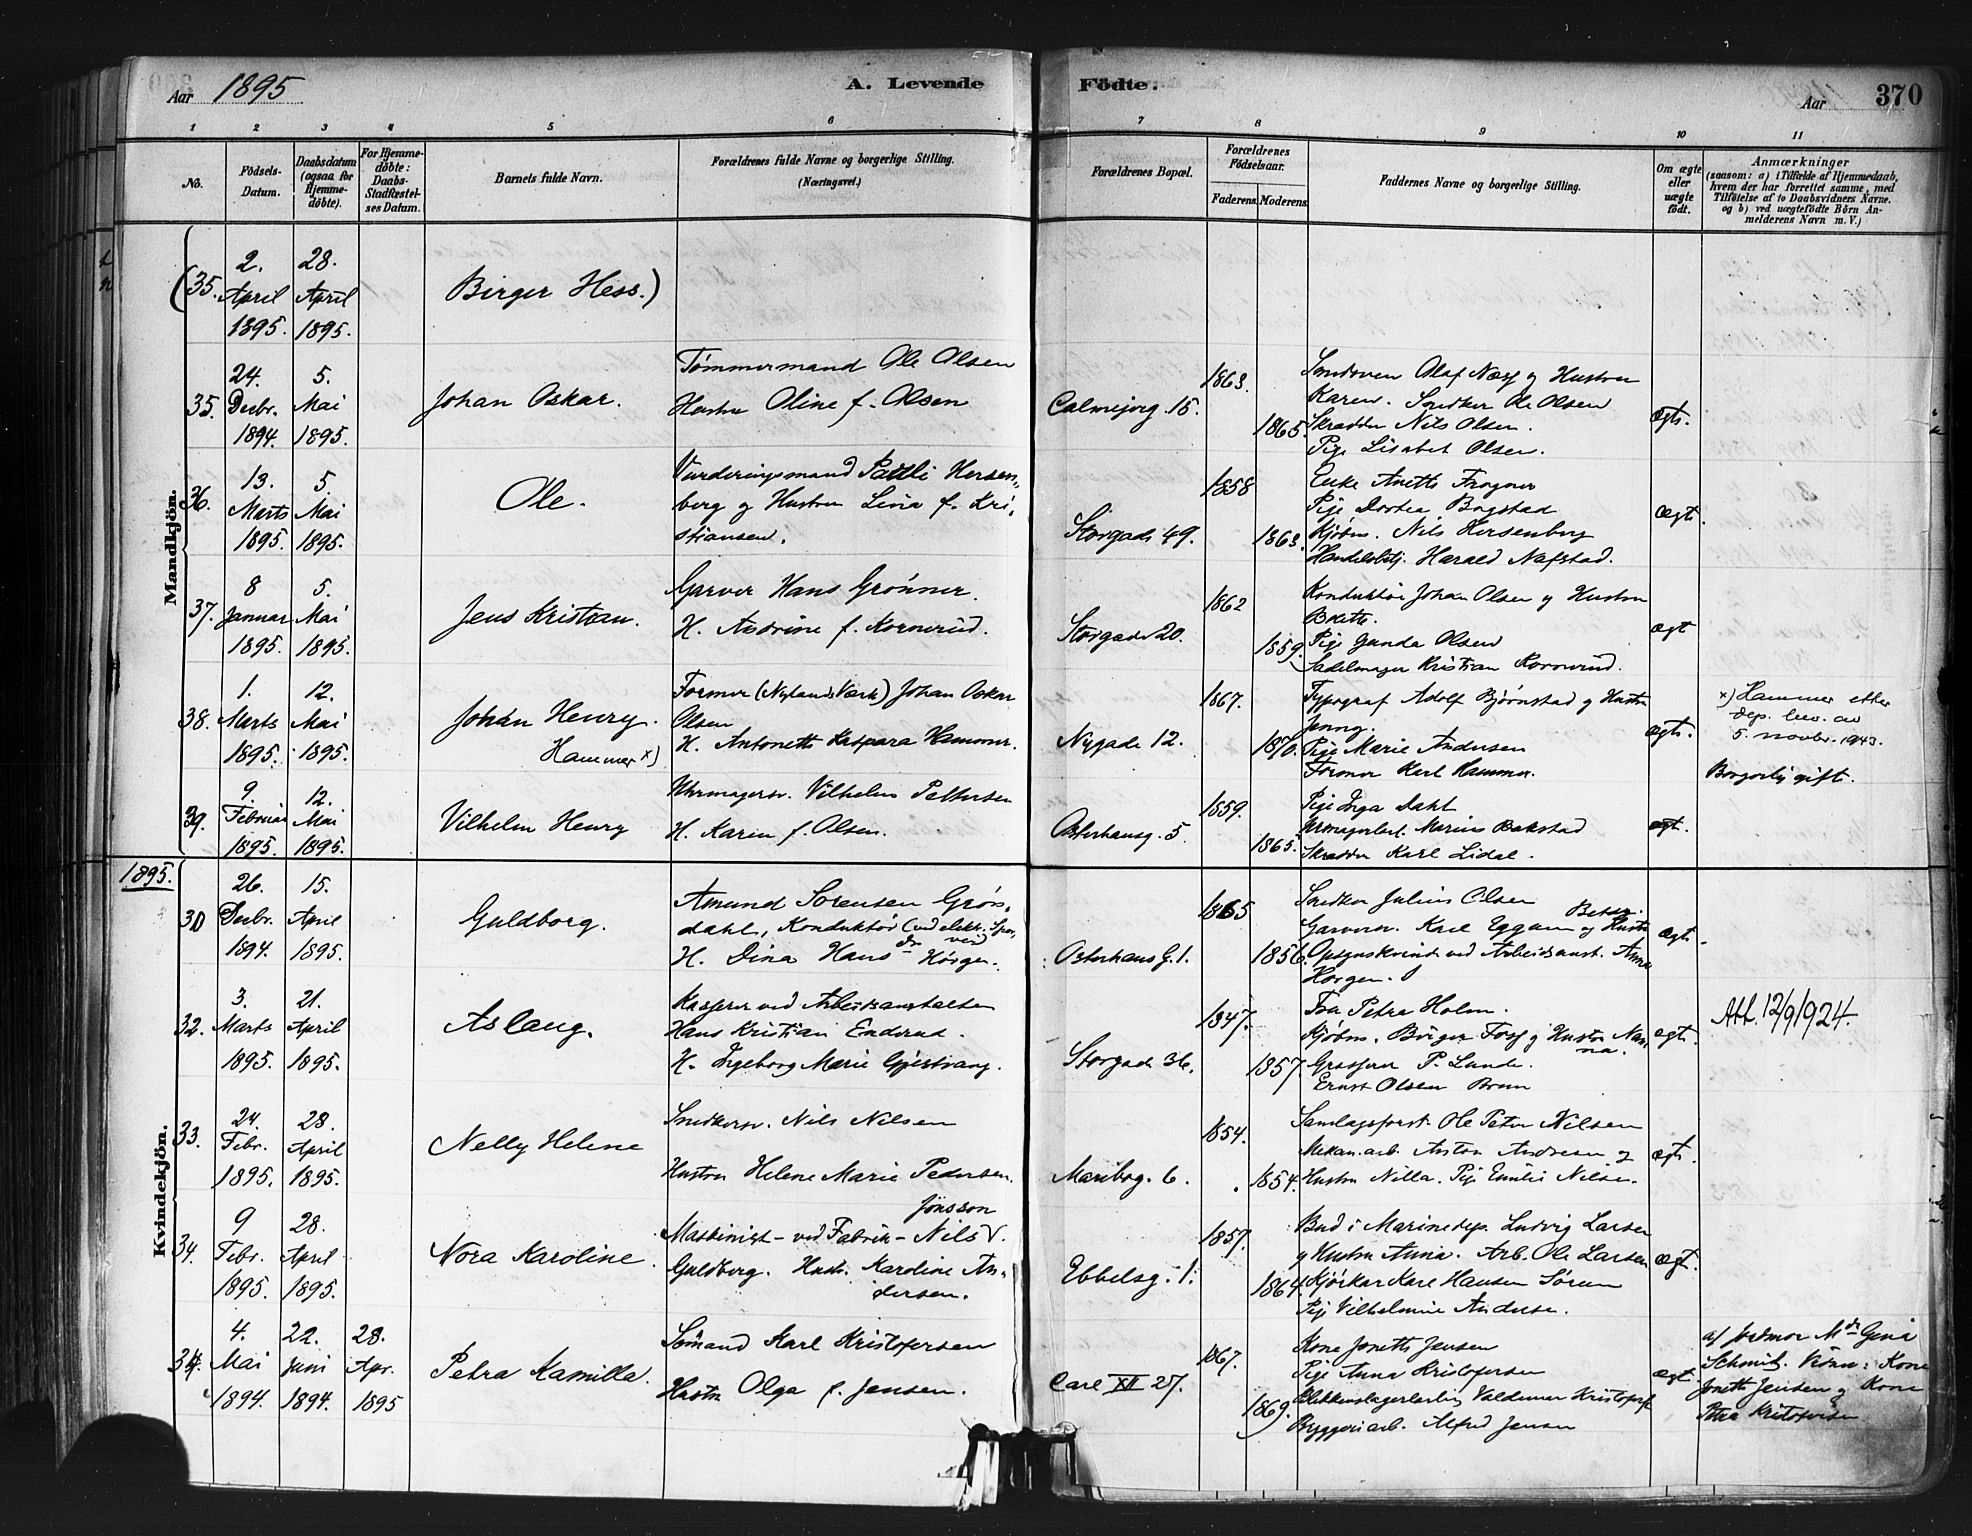 Aar 1895
A. Levende
Födte.
Aar
370
1 2 3 4 5 6 7 8 9 10 11
No.
Födsels-Datum.
Daabsdatum (ogsaa for Hjemme-döbte).
For Hjemme-döbte: Daabs-Stadfæstel-ses Datum.
Barnets fulde Navn.
Forældrenes fulde Navne og borgerlige Stilling.
(Næringsvei.)
Forældrenes Bopæl.
Forældrenes Födselsaar.
Faderens. Moderens.
Faddernes Navne og borgerlige Stilling.
Om ægte eller uægte födt.
Anmærkninger
(saasom: a) i Tilfælde af Hjemmedaab,
hvem der har forrettet samme, med
Tilföielse af to Daabsvidners Navne.
og b) ved uægtefödte Börn An-
melderens Navn m. V.)
Mandkjön.
(35. 2. April 1895. 28. April 1895. Birger Hess.)
35. 24. Decbr. 1894. 5. Mai 1895. Johan Oskar.
Tømmermand Ole Olsen
Hustru Oline f. Olsen
Calmeyerg. 15. 1863. 1865.
Olaf Næss og Hustru
Karen. Snedker Ole Olsen
Skrædder Nils Olsen.
Pige Lisabet Olsen.
ægte.
36. 13. Marts 1895. 5 Mai 1895. Ole.
Vurderingsmand Paulli Hersen-
berg og Hustru Lina f. Kri-
stiansen.
Storgade 49. 1858 1863.
Enke Anette Frogner
Pige Dortea Bogstad
Kjøbm. Nils Hersenberg
Handelsbetj. Harald Nafstad.
ægte.
37. 8 Januar 1895. 5. Mai 1895. Jens Kristian.
Garver Hans Grönner.
H. Andrine f. Kornerud.
Storgade 20. 1862 1859.
Konduktör Johan Olsen og Hustru
Bolette.
Pige Gunda Olsen
Sadelmager Kristian Kornerud.
ægte
38. 1. Marts 1895. 12. Mai 1895. Johan Henry.
Hammer x)
Former (Nylands Værk) Johan Oskar
Olsen
H. Antonette Kaspara Hammer.
Nygade 12. 1867. 1870.
Typograf Adolf Bjørnstad og Hustru
Jenny.
Pige Marie Andersen
Former Karl Hammer.
ægte.
x) Hammer etter
dep. bev. av
5. novbr. 1943.
Borgerlig gift.
39. 9. Februar 1895. 12. Mai 1895. Vilhelm Henry
Uhrmagersv. Vilhelm Pettersen
H. Karen f. Olsen.
Osterhausg. 5. 1859. 1865.
Pige Inga Dahl
Marius Bakstad
Skrædder Karl Lidal.
ægt.
1895.
Kvindekjön.
30 26. Decbr. 1894. 15. April 1895. Guldborg.
Amund Sorensen Grøn-
dahl, Konduktör (ved elektr. Spor-
vei
H. Dina Hansdr Horgen.
Osterhaus G. 1. 1865 1856.
Snedker Julius Olsen
Garversv. Karl Eggum og Hustru Betsy.
Opsynskvinde ved Arbeidsanst. Anna
Horgen.
ægte.
32. 3. Marts 1895. 21. April 1895. Aslaug.
Kasserer ved Arbeidsanstalten
Hans Kristian Enderud.
H. Ingeborg Marie Gjestvang.
Storgade 36. 1847. 1857.
Frøk. Petra Holm.
Kjøbm. Birger Foss og Hustru Nan-
na.
Grosserer P. Lunde.
Ernst Olsen Brun
ægte.
Att. 12/9 1924.
33. 24. Febr. 1895. 28. April 1895. Nelly Helene
Snedkersv. Nils Nilsen
Hustru Helene Marie Pedersen.
Maribog. 6. 1854. 1854.
Samlagsforst. Ole Peter Nilsen
Mekan. arb. Anton Andresen og
Hustru Nilla. Pige Emilie Nilsen.
ægte.
34. 9 Febr. 1895. 28. April 1895. Nora Karoline.
Jönsson
Maskinist - ved Fabrik - Nils V.
Guldberg. Hustr. Karoline An-
dersen.
Ebbelsg. 1. 1857. 1864.
Bud i Marinedep. Ludvig Larsen
og Hustru Anna. Arb. Ole Larsen
Kjørkar Karl Hansen Sörum
Pige Vilhelmine Andersen.
ægt.
34. 4. Mai 1894. 22. Juni 1894. 28. Apr. 1895 Petra Kamilla.
Sömand Karl Kristofersen
Hustru Olga f. Jensen.
Carl XII 27. 1867. 1869.
Kone Jonette Jensen
Pige Anna Kristofersen
Blikkenslagerlærling Valdemar Kristofersen
Bryggeriarb. Alfred Jensen
ægt.
af Jordmor Md. Gina
Schmit. Vidner: Kone
Jonette Jensen og Kone
Petra Kristofersen